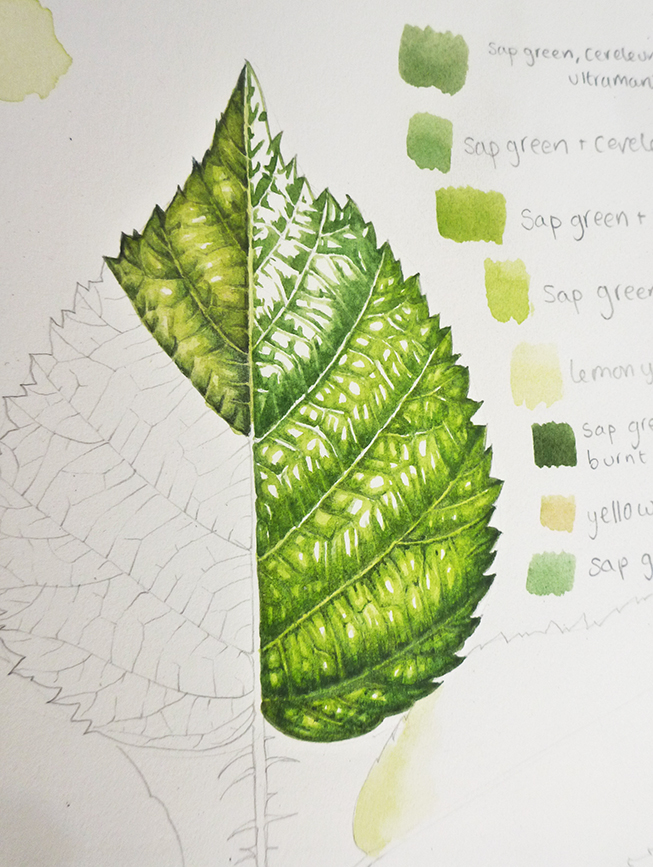 sap green, cereleu
ultraman
sap green + cerele
Sap green +
Sap green
lemon y
sap gre
burnt
yellow
sap g